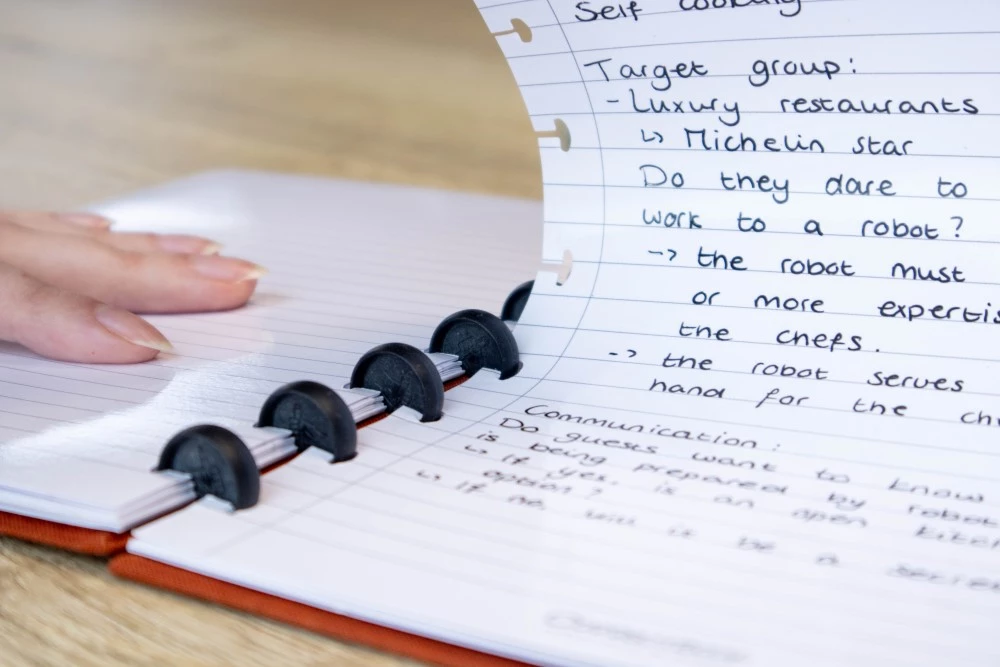 Self cooking
Target group:
- Luxury restaurants
↳ Michelin star
Do they dare to
work to a robot?
-> the robot must
or more expertis
the chefs.
-> the robot serves
hand for the ch
Communication:
Do guests want to know
is being prepared by robot
↳ If yes, is an open kitch
option?
↳ If no, will it be a secre